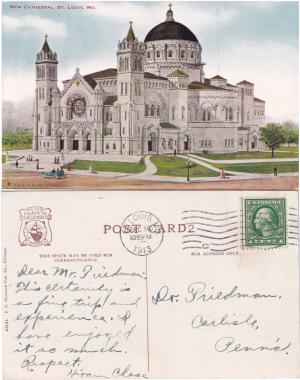 NEW CATHEDRAL, ST. LOUIS, MO.
POST CARD
THIS SPACE MAY BE USED FOR CORRESPONDENCE
FOR ADDRESS ONLY
ST. LOUIS, M
1913
Dear Mr. Friedman:
This certainly is
a fine trip and
experience. I
have enjoyed
it so much.
Respect.
Hiram Close
Dr. Friedman,
Carlisle,
Penn'a.